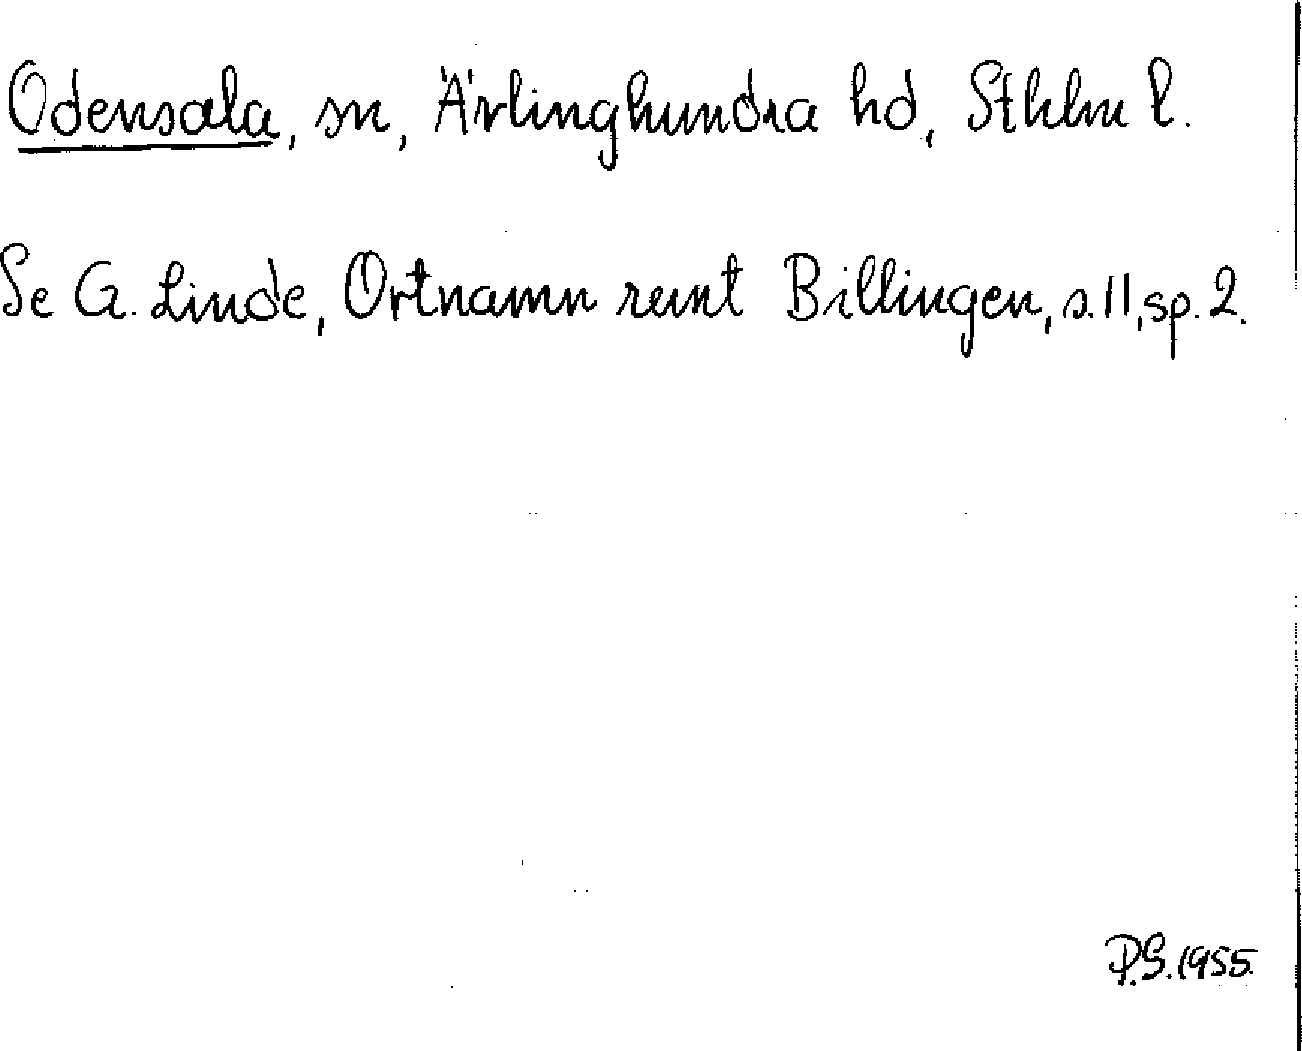 Odensala, sn, Ärlinghundra hd, Sthlm l.
Se G. Linde, Ortnamn runt Billingen, s. 11, sp. 2.
P.S. 1955.